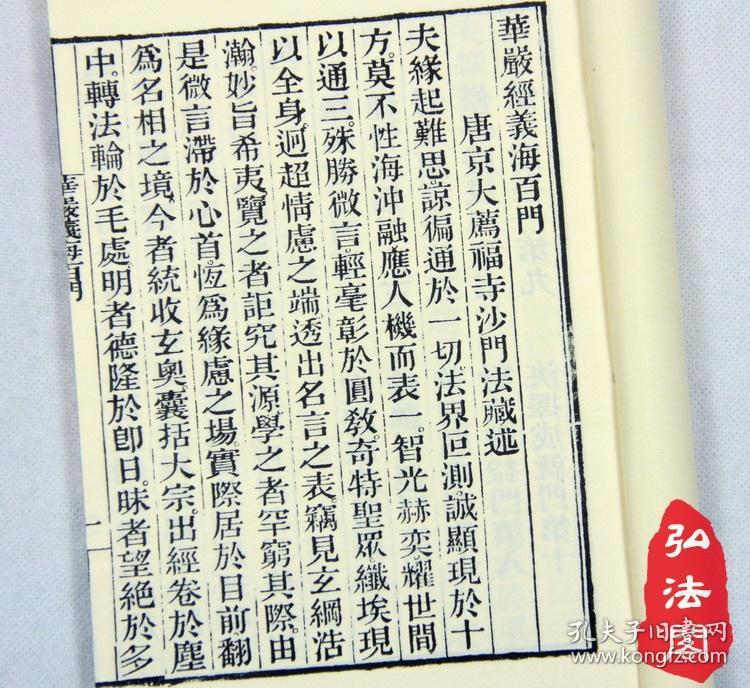 華嚴經義海百門
唐京大薦福寺沙門法藏述
夫緣起難思諒徧通於一切法界叵測誠顯現於十
方。莫不性海沖融應人機而表一。智光赫奕耀世間
以通三。殊勝微言。輕毫彰於圓教。奇特聖眾纖埃現
以全身。迥超情慮之端。透出名言之表。竊見玄綱浩
瀚。妙旨希夷覽之者詎究其源學之者罕窮其際。由
是微言滯於心首。恆爲緣慮之場。實際居於目前翻
爲名相之境。今者統收玄奧。囊括大宗。出經卷於塵
中。轉法輪於毛處。明者德隆於卽日。昧者望絕於多
華嚴義海百門
一
弘法書閣
孔夫子旧书网
www.kongfz.com